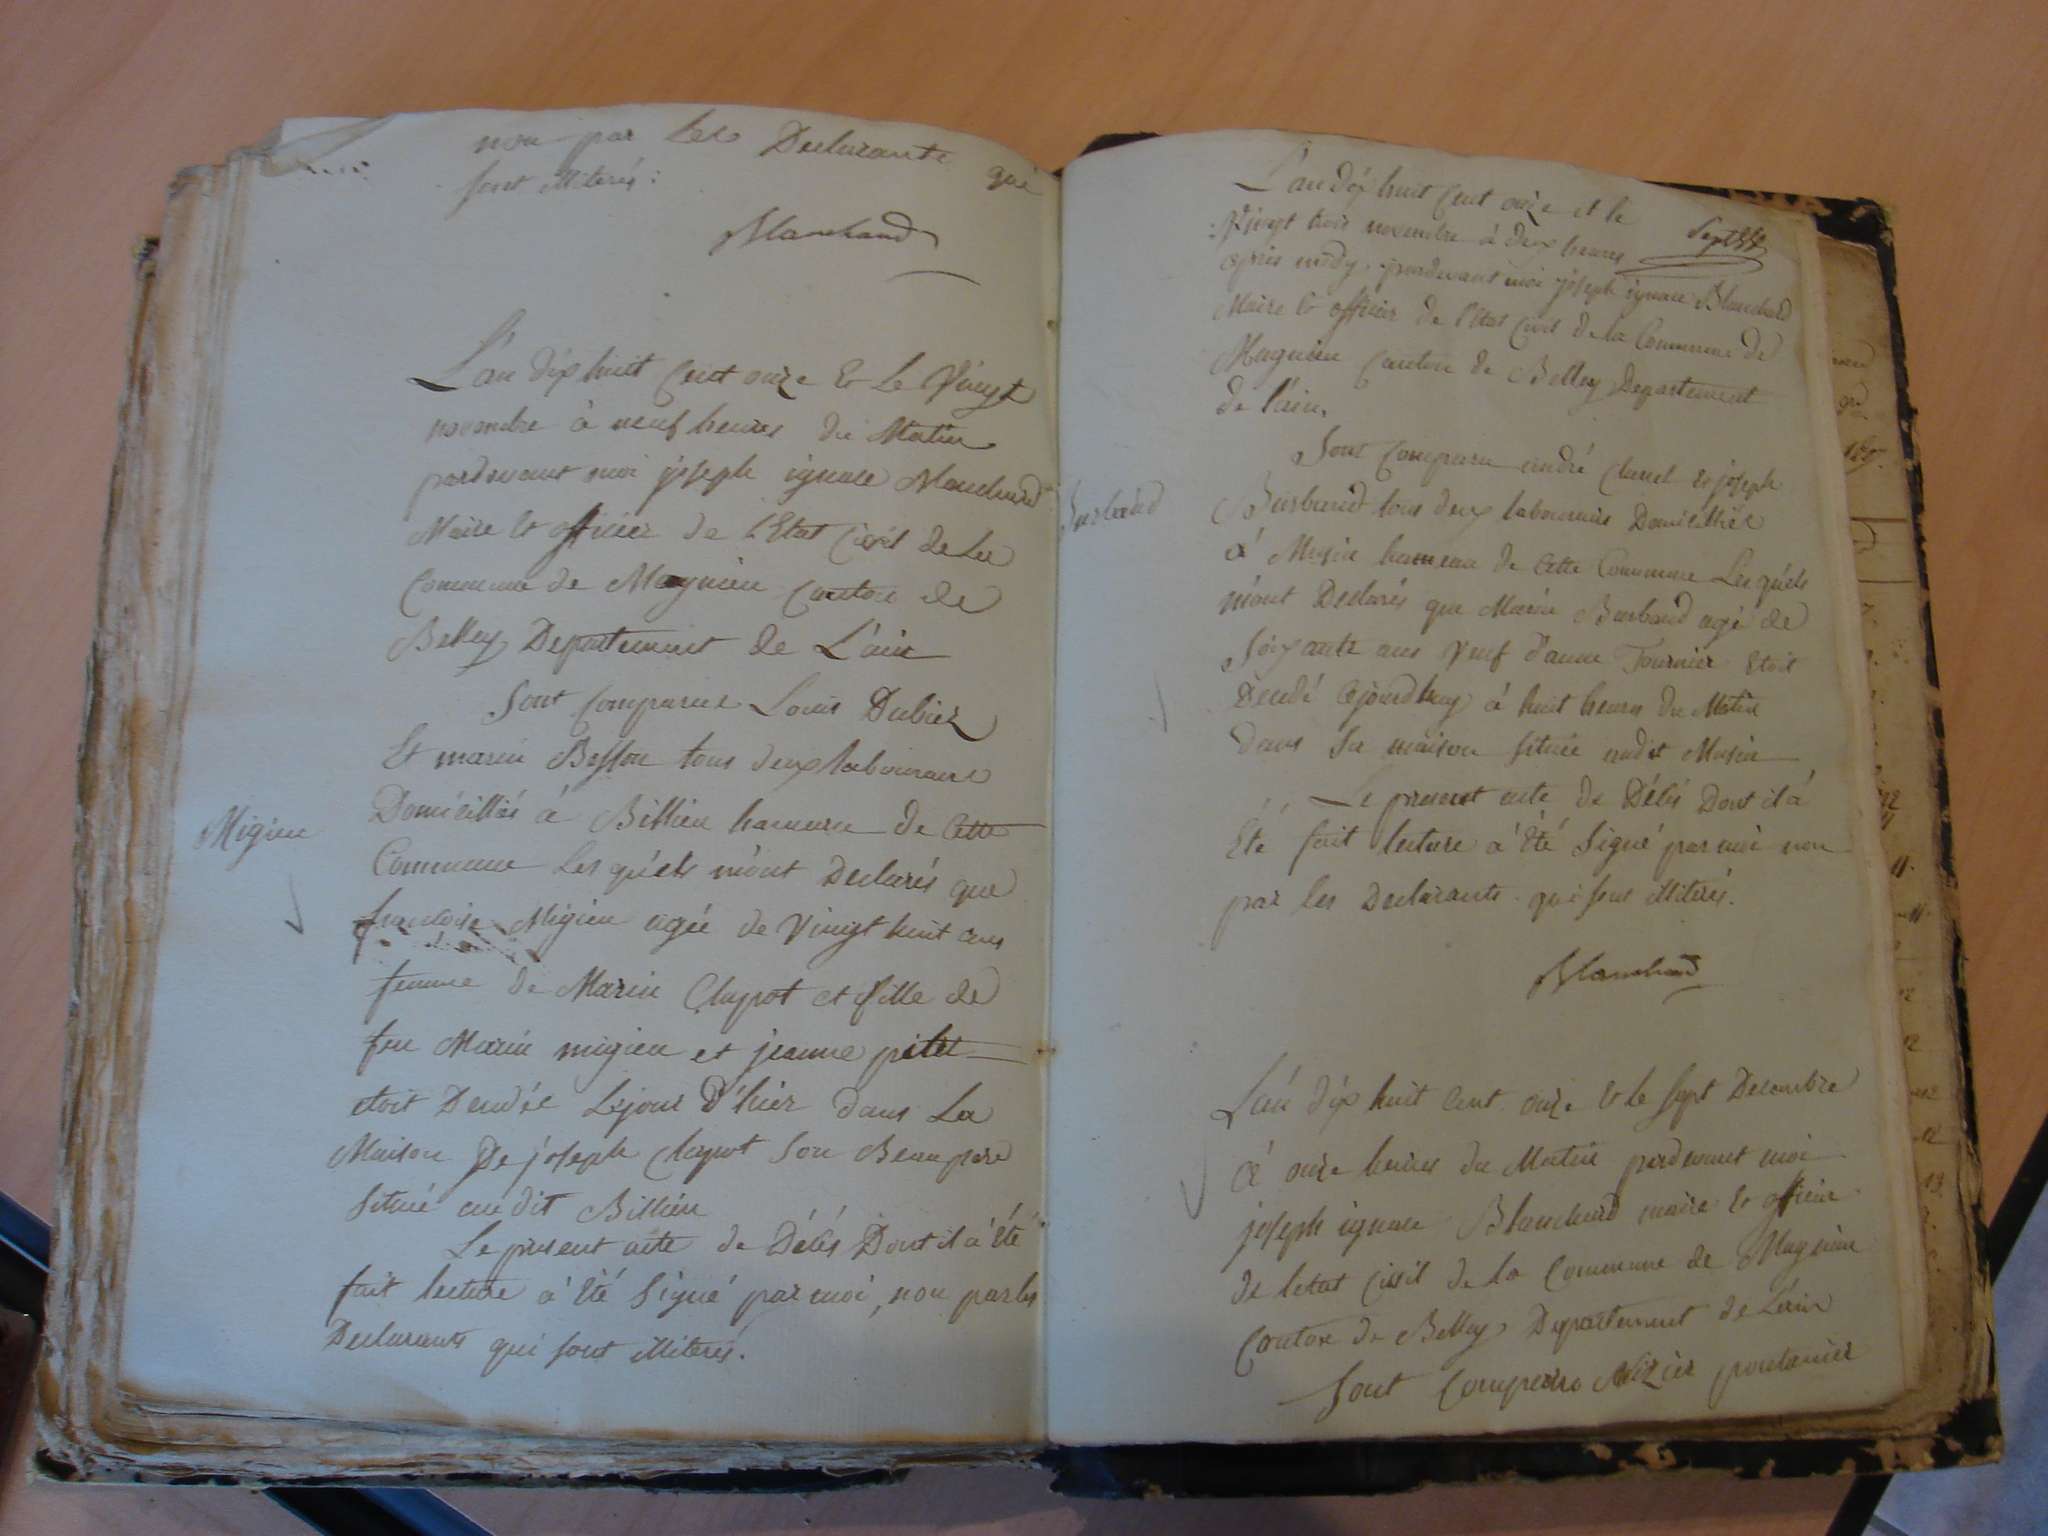 non par les Declarants qui
sont illiterés:
Blanchard
L'an dix huit cent onze & le vingt
novembre à neuf heures du Matin
pardevant moi joseph ignace Blanchard
Maire & officier de l'Etat Civil de la
Commune de Magnieu Canton de
Belley Departement de L'ain
Sont Comparus Louis Dubiez
Et marin Besson tous deux laboureurs
Domicilliés à Billieu hameau de Cette
Migieu
Commune Les quéls m'ont Declarés que
francoise Migieu agée de vingt huit ans
femme de Marin Clapot et fille de
feu Marin migieu et jeanne pitet
etoit Decedée Lejour D'hier dans La
Maison De joseph Clapot son Beau pere
situé au dit Billieu
Le present acte de Décés Dont il à Eté
fait lecture à Eté signé par moi, non par les
Declarants qui sont illiterés.
L'an dix huit Cent onze et le
Sept
vingt trois novembre à deux heures
après midy, pardevant moi joseph ignace Blanchard
Maire & officier de l'Etat Civil de la Commune de
Magnieu Canton de Belley Departement
de l'ain,
Sont Comparu andré Clunet & joseph
Burbaud
Burbaud tous deux laboureurs Domicilliés
à Musin hameau de Cette Commune Les quéls
m'ont Declarés que Marin Burbaud agé de
Soixante ans veuf d'anne Fournier Etoit
Decedé Cejourdhuy à huit heures du Matin
dans sa maison située audit Musin
Le present acte de Décés Dont il à
Eté fait lecture à Eté signé par moi non
par les Declarants qui sont illiterés.
Blanchard
L'an dix huit Cent onze & le sept Decembre
à onze heures du Matin pardevant moi
joseph ignace Blanchard maire & officier
de letat Civil de la Commune de Magnieu
Canton de Belley Departement de L'ain
Sont Comparu Nizier pontanier